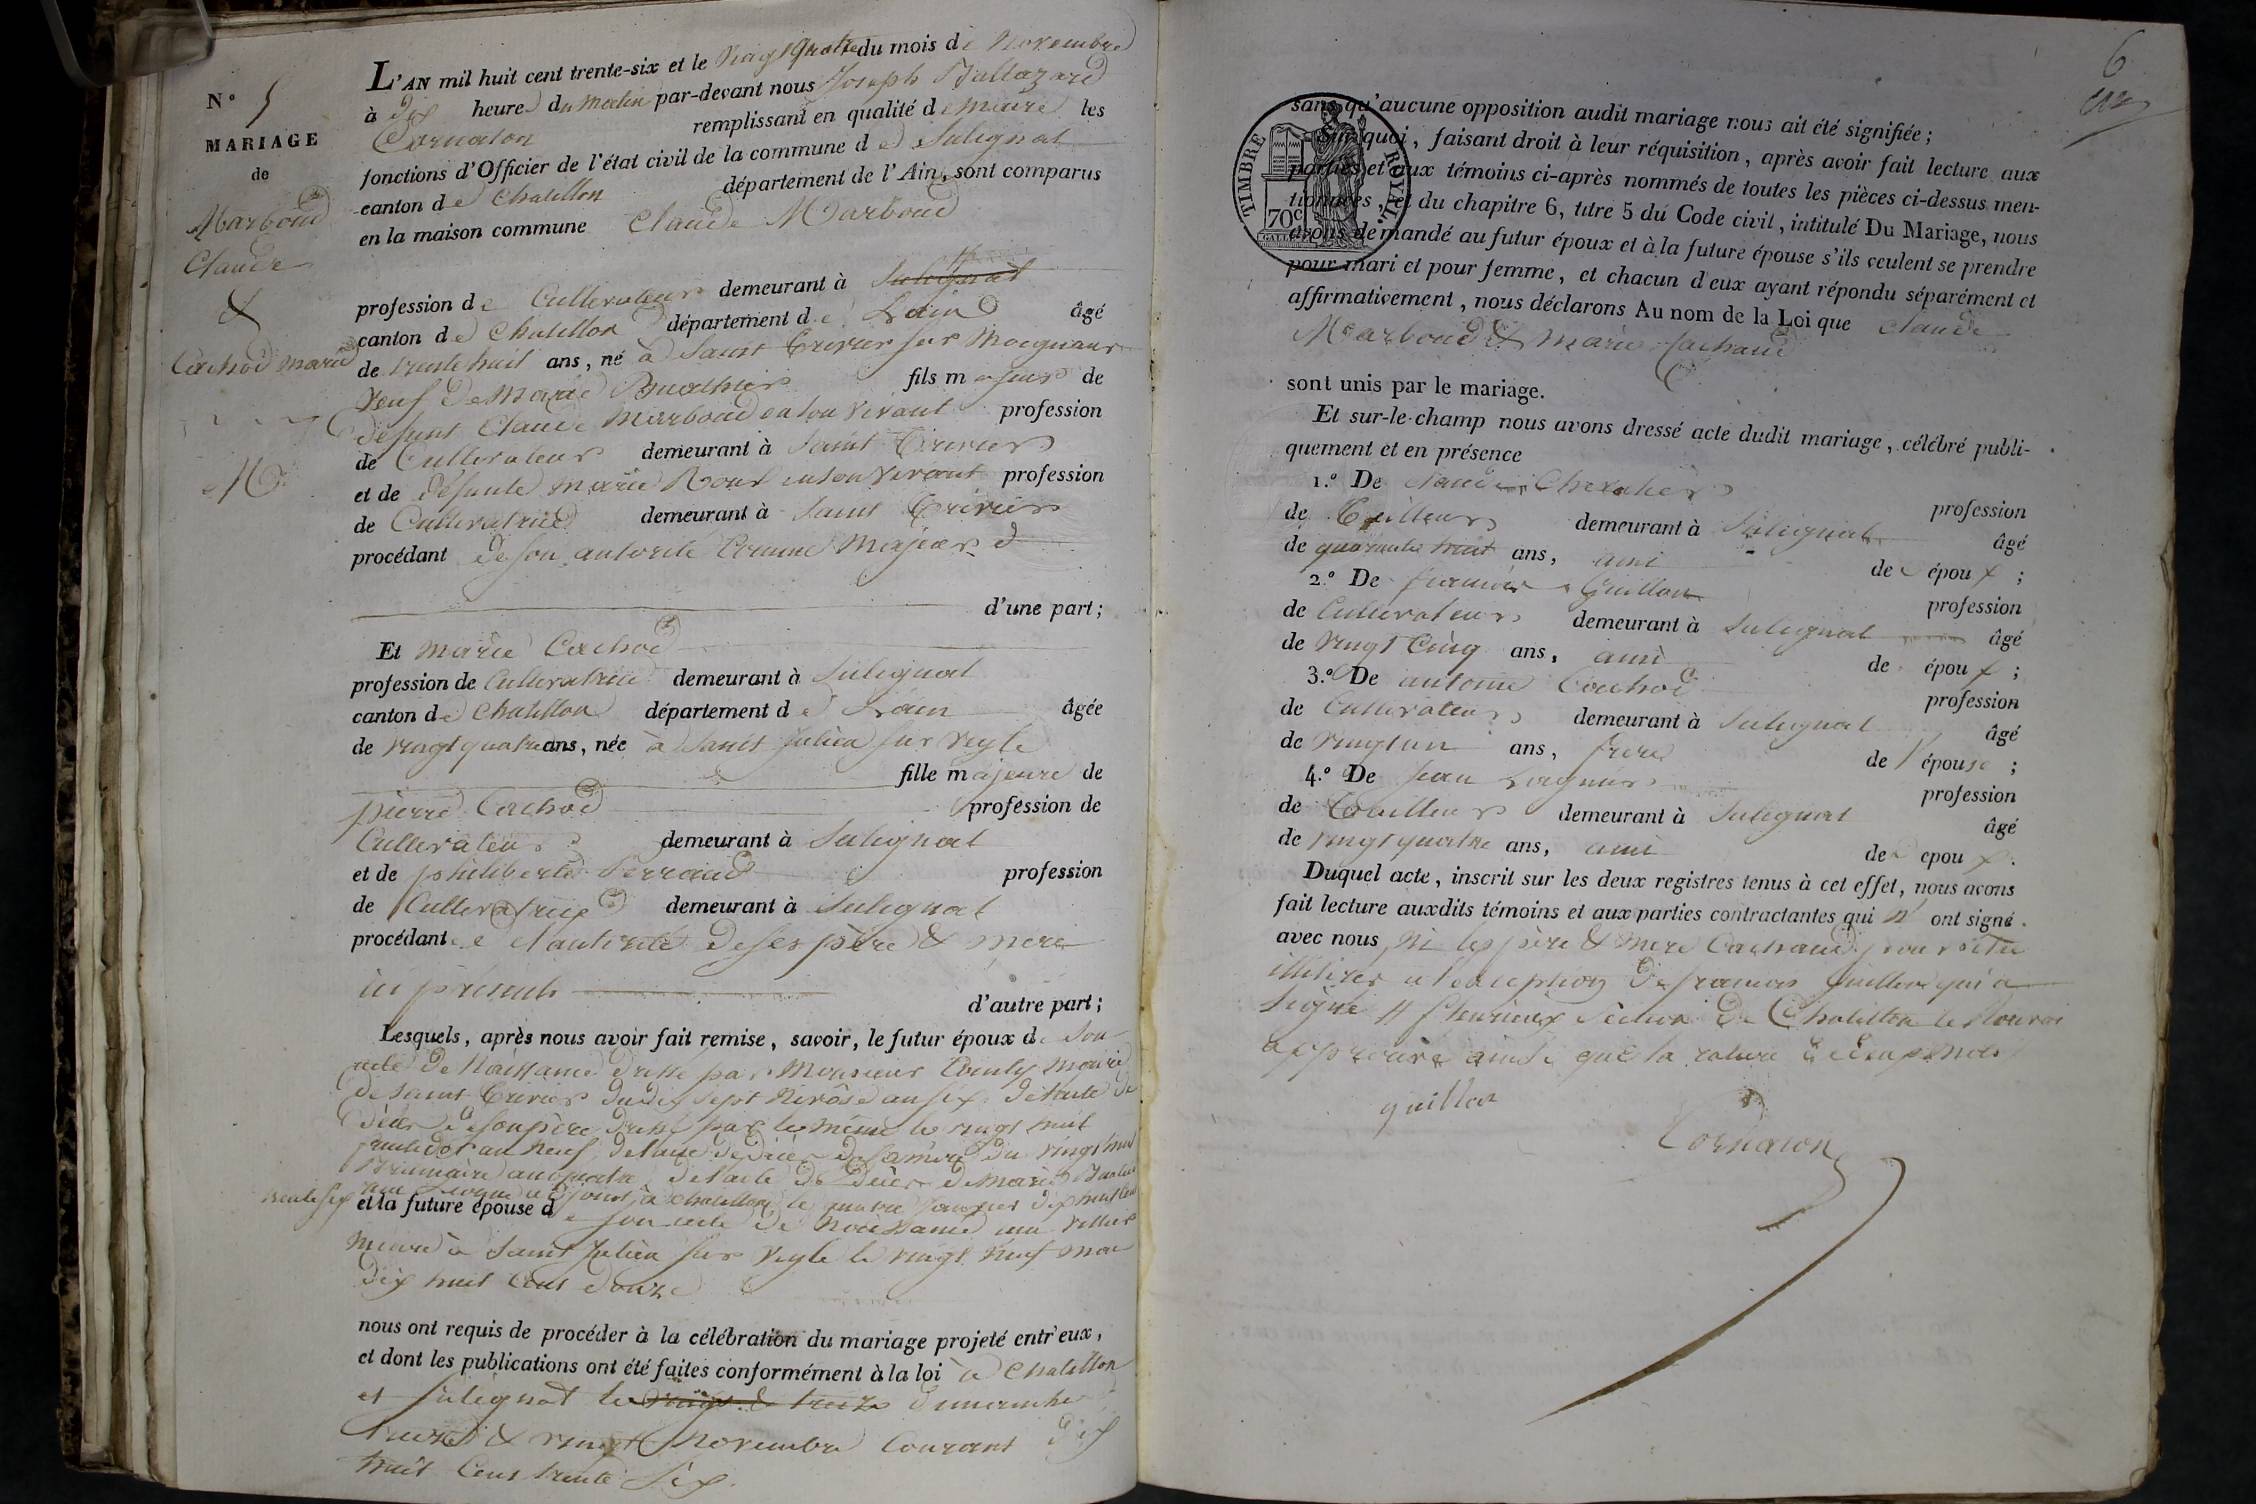 N° 5
MARIAGE
de
Marboud
Claude
&
Cachod marie
L'AN mil huit cent trente-six et le vingt quatre du mois de novembre
à dix heures du matin par-devant nous Joseph Baltazard
Cornaton remplissant en qualité de maire les
fonctions d'Officier de l'état civil de la commune de Sulignat
canton de Chatillon département de l'Ain, sont comparus
en la maison commune Claude Marboud
profession de Cultivateur demeurant à Sulignat
canton de Chatillon département de Lain âgé
de trente huit ans, né à Saint Trivier sur Moignans
veuf de Marie fils majeur de
défunt Claude Marboud en son vivant profession
de Cultivateur demeurant à Saint Trivier
et de défunte marie Roux en son vivant profession
de Cultivatrice demeurant à Saint Trivier
procédant de son autorité comme Majeur
d'une part;
Et marie Cachod
profession de Cultivatrice demeurant à Sulignat
canton de Chatillon département de Lain âgée
de vingt quatre ans, née à Saint Julien sur Veyle
fille majeure de
pierre Cachod profession de
Cultivateur demeurant à Sulignat
et de philiberte Perraud profession
de Cultivatrice demeurant à Sulignat
procédant de l'autorité de ses père & mere
ici présents
d'autre part;
Lesquels, après nous avoir fait remise, savoir, le futur époux de Son
acte de Naissance dressé par Monsieur maire
de saint Trivier du dix sept Nivôse an six de l'acte de
décès de son père dressé par le même le vingt huit
an neuf de l'acte de décès de sa mère du vingt
Brumaire an quatre de l'acte de décès de Marie
à chatillon le janvier dix huit cent
trente six et la future épouse de son acte de Naissance
maire à Saint Julien sur Veyle le vingt neuf mai
dix huit cent douze
nous ont requis de procéder à la célébration du mariage projeté entr'eux,
et dont les publications ont été faites conformément à la loi à Chatillon
et Sulignat les vingt & treize dimanche
treize & vingt Novembre Courant dix
huit cent trente six.
6
TIMBRE ROYAL
70c
sans qu'aucune opposition audit mariage nous ait été signifiée;
Sur quoi, faisant droit à leur réquisition, après avoir fait lecture aux
parties et aux témoins ci-après nommés de toutes les pièces ci-dessus men-
tionnées, et du chapitre 6, titre 5 du Code civil, intitulé Du Mariage, nous
avons demandé au futur époux et à la future épouse s'ils veulent se prendre
pour mari et pour femme, et chacun d'eux ayant répondu séparément et
affirmativement, nous déclarons Au nom de la Loi que Claude
Marboud & marie Cachaud
sont unis par le mariage.
Et sur-le-champ nous avons dressé acte dudit mariage, célébré publi-
quement et en présence
1.° De Claude Chevalier profession
de Tailleur demeurant à Sulignat âgé
de quarante huit ans, ami de époux;
2.° De francois Guillon profession
de Cultivateur demeurant à Sulignat âgé
de vingt Cinq ans, ami de époux;
3.° De antoine Cachod profession
de Cultivateur demeurant à Sulignat âgé
de vingt un ans, frere de l'épouse;
4.° De Jean profession
de Tailleur demeurant à Sulignat âgé
de vingt quatre ans, ami de epoux.
Duquel acte, inscrit sur les deux registres tenus à cet effet, nous avons
fait lecture auxdits témoins et aux parties contractantes qui n' ont signé
avec nous Ni les père & mere Cachaud pour être
illitirés a l'exception de francois Guillon qui a
Signé # de Chatillon
approuvé ainsi que la rature de cinq mots
guillon
Cornaton